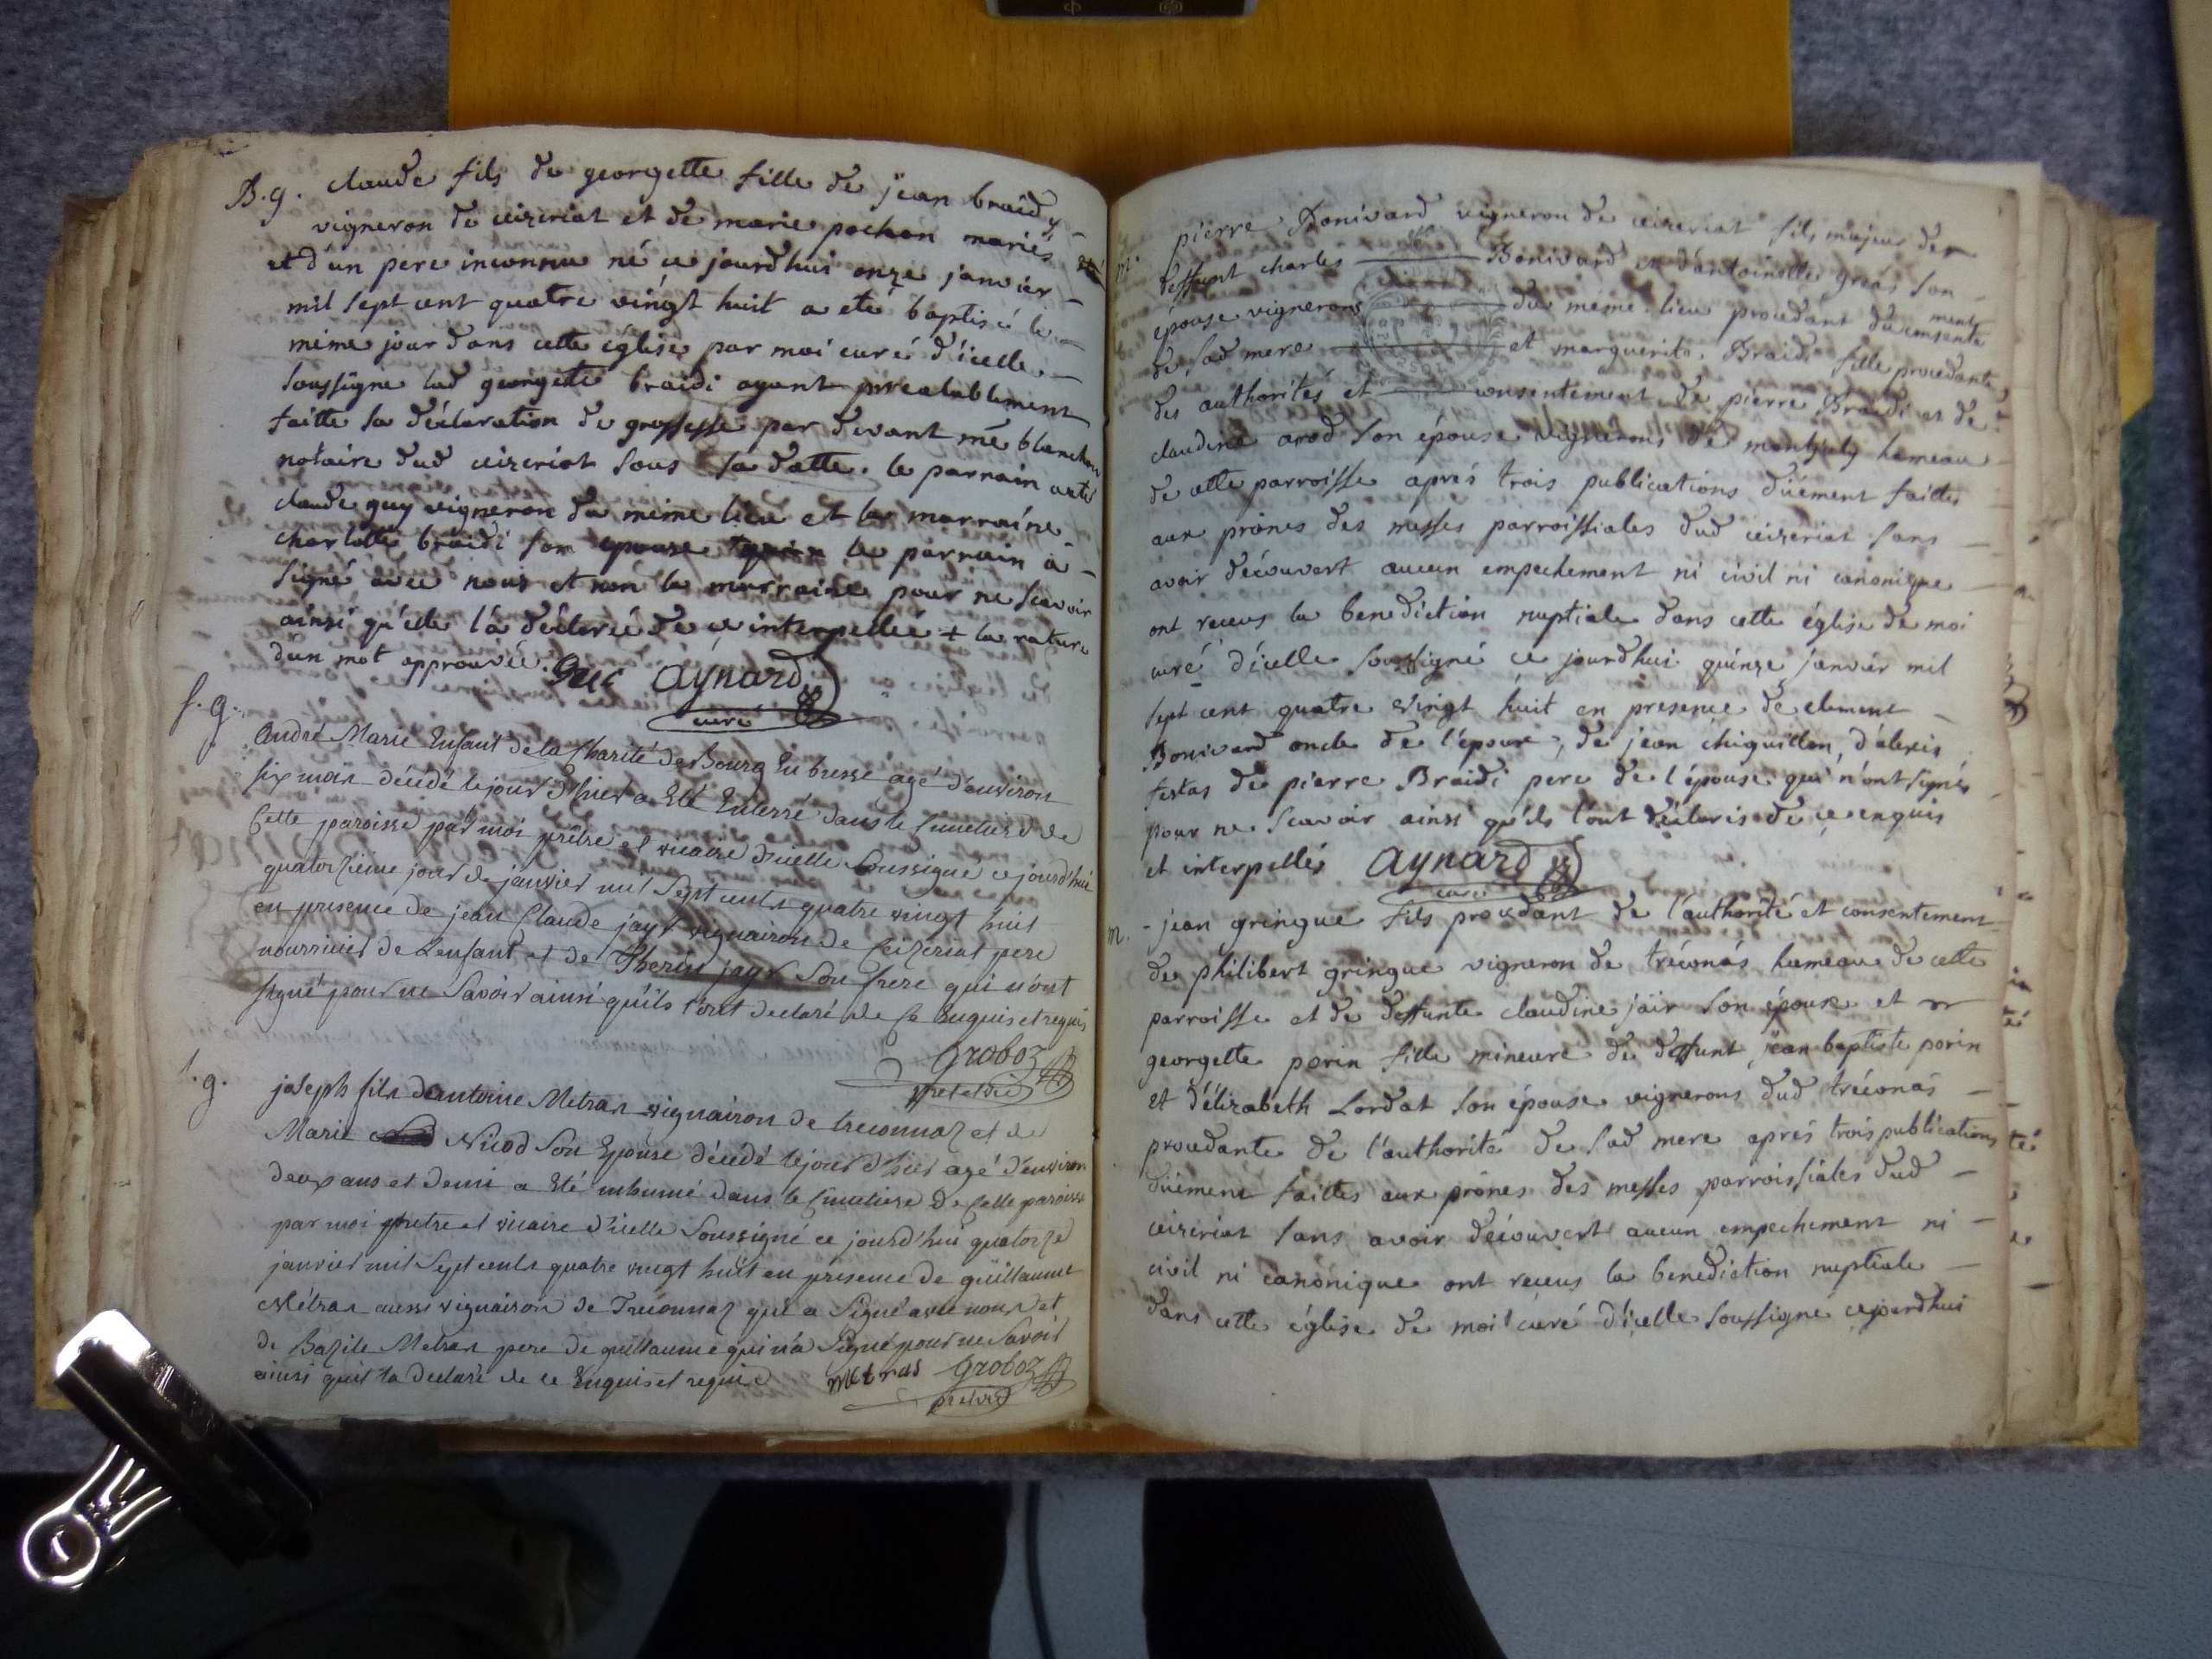 B.g. claude fils de georgette fille de jean braidy
vigneron de ceizeriat et de marie pochon mariés
et d'un pere inconnu né ce jourd'hui onze janvier
mil sept cent quatre vingt huit a eté baptisé le
même jour dans cette église par moi curé d'icelle
soussigné lad georgette braidi ayant prealablement
faitte sa déclaration de grossesse par devant me blanchon
notaire dud ceizeriat sous sa datte. le parrain a eté
claude guy vigneron du même lieu et la marraine
charlotte braidi son epouse le parrain a
signé avec nous et non la marraine pour ne scavoir
ainsi qu'elle l'a déclaré de ce interpellée + la rature
d'un mot approuvée. Guc Aynard
curé
s.g.
André Marie Enfant de la Charité de Bourg En bresse agé d'environ
six mois décédé le jour d'hier a Eté Enterré dans le cimetiere de
Cette paroisse par moi prêtre et vicaire d'icelle Soussigné ce jourd'hui
quatorzième jour de janvier mil Sept cents quatre vingt huit
en presence de jean Claude jayr vignairon de Ceizeriat pere
nourricier de L'enfant et de Therin jayr Son frere qui n'ont
signé pour ne Savoir ainsi qu'ils l'ont declaré de ce Enquis et requis
Groboz
pret et vic
s.g.
joseph fils d'antoine Metras vignairon de treconnaz et de
Marie Nicod Son Epouse décédé le jour d'hier agé d'environ
deux ans et demi a Eté inhumé dans le Cimetiere De Cette paroisse
par moi prêtre et vicaire d'icelle Soussigné ce jourd'hui quatorze
janvier mil Sept cents quatre vingt huit en présence de guillaume
Métras aussi vignairon de Treconnaz qui a Signé avec nous et
de Bazile Metras pere de guillaume qui n'a Signé pour ne Savoir
ainsi qu'il l'a declaré de ce Enquis et requis metras Groboz
pret vic
m.
pierre Bonivard vigneron de ceizeriat fils majeur de
deffunt charles Bonivard et d'antoinette gras son
épouse vignerons du même lieu procedant du consentement
de sad mere et marguerite Braidi fille procedante
des authorités et consentement de pierre Braidi et de
claudine arod son épouse vignerons de montjuly hameau
de cette parroisse aprés trois publications düement faittes
aux prônes des messes parroissiales dud ceizeriat sans
avoir découvert aucun empechement ni civil ni canonique
ont receus la benediction nuptiale dans cette église de moi
curé d'icelle soussigné ce jourd'hui quinze janvier mil
sept cent quatre vingt huit en presence de clement
Bonivard oncle de l'époux, de jean chiquillon, d'alexis
festas de pierre Braidi pere de l'épouse qui n'ont signés
pour ne scavoir ainsi qu'ils l'ont déclaris de ce enquis
et interpellés Aynard
curé
m. - jean gringue fils procedant de l'authorité et consentement
de philibert gringue vigneron de tréconás hameau de cette
parroisse et de deffunte claudine jaïr son épouse et
georgette porin fille mineure de deffunt jean baptiste porin
et d'élizabeth Lordat son épouse vignerons dud tréconás
procedante de l'authorité de sad mere aprés trois publications
düement faittes aux prônes des messes parroissiales dud
ceizeriat sans avoir découvert aucun empechement ni
civil ni canonique ont receus la benediction nuptiale
dans cette église de moi curé d'icelle soussigné cejourdhui